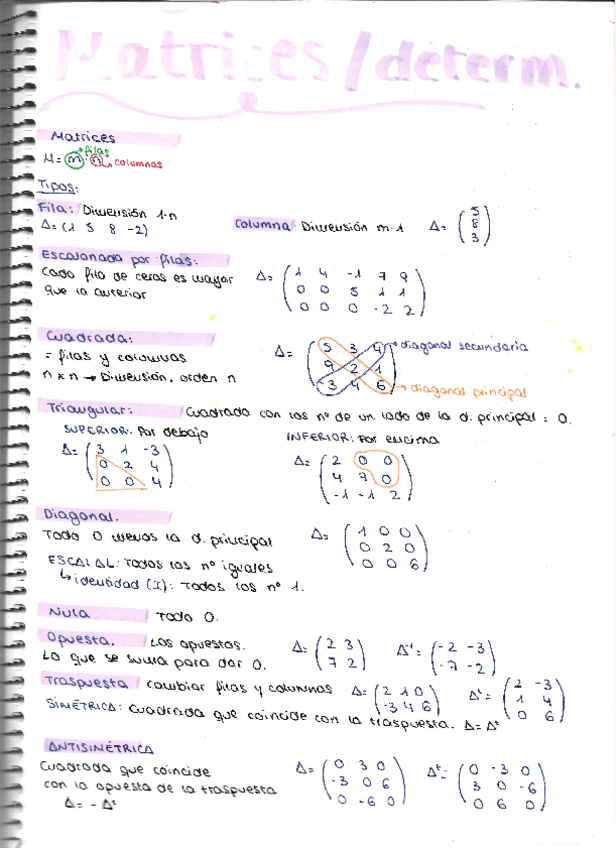 Matrices/determ.
Matrices
M = m · n
filas
columnas
Tipos:
Fila: Dimensión 1·n
A = (1 5 8 -2)
Columna: Dimensión m·1
A = (5
8
3)
Escalonada por filas:
Cada fila de ceros es mayor
que la anterior
A = (1 4 -1 7 9
0 0 5 1 1
0 0 0 -2 2)
Cuadrada:
= filas y columnas
n x n → Dimensión, orden n
A = (5 3 4
9 2 1
-3 4 6)
→ diagonal secundaria
→ diagonal principal
Triangular: Cuadrada con los nº de un lado de la d. principal = 0.
SUPERIOR: Por debajo
A = (3 1 -3
0 2 4
0 0 4)
INFERIOR: Por encima
A = (2 0 0
4 7 0
-1 -1 2)
Diagonal.
Todo 0 menos la d. principal
A = (1 0 0
0 2 0
0 0 6)
ESCALAL: Todos los nº iguales
↳ identidad (I): Todos los nº 1.
Nula Todo 0.
Opuesta. Los opuestos.
Lo que se suma para dar 0.
A = (2 3
7 2)
(-2 -3
-7 -2)
Traspuesta Cambiar filas y columnas
A = (2 1 0
-3 4 6)
Aᵗ = (2 -3
1 4
0 6)
SIMÉTRICA: Cuadrada que coincide con la traspuesta. A = Aᵗ
ANTISIMÉTRICA
Cuadrada que coincide
con la opuesta de la traspuesta
A = - Aᵗ
A = (0 3 0
-3 0 6
0 -6 0)
Aᵗ = (0 -3 0
3 0 -6
0 6 0)